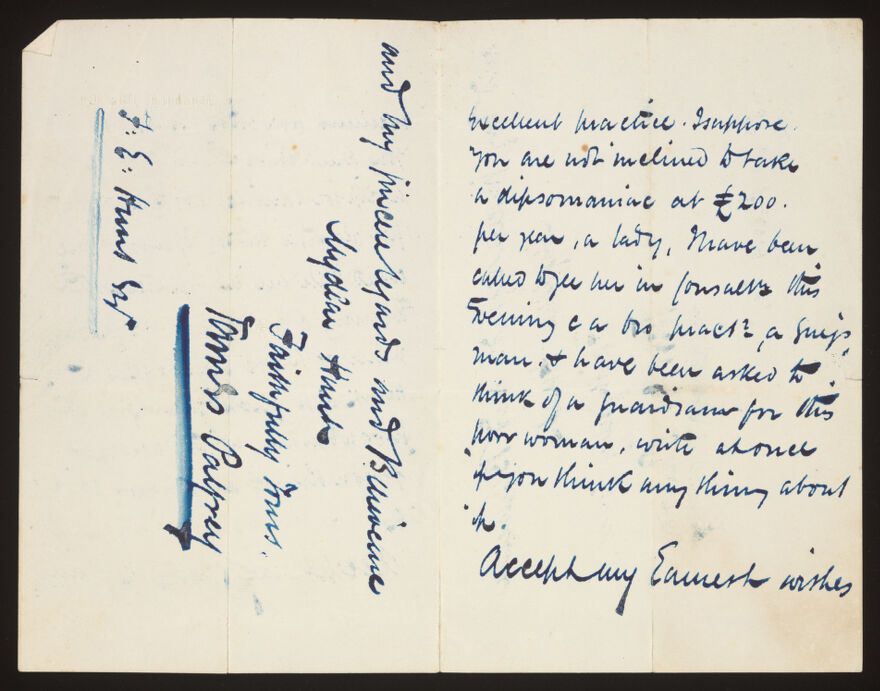 Excellent practice. I suppose
you are not inclined to take
a dipsomaniac at £200.
per year, a lady, I have been
called to see her in Consultn this
Evening c a bro practr, a Guy's
man, & have been asked to
think of a guardian for this
poor woman, write at once
if you think anything about
it.
Accept my Earnest wishes
and my sincere regards and Believe me
My dear Hunt
Faithfully Yours.
James Palfrey
F. E. Hunt Esqr